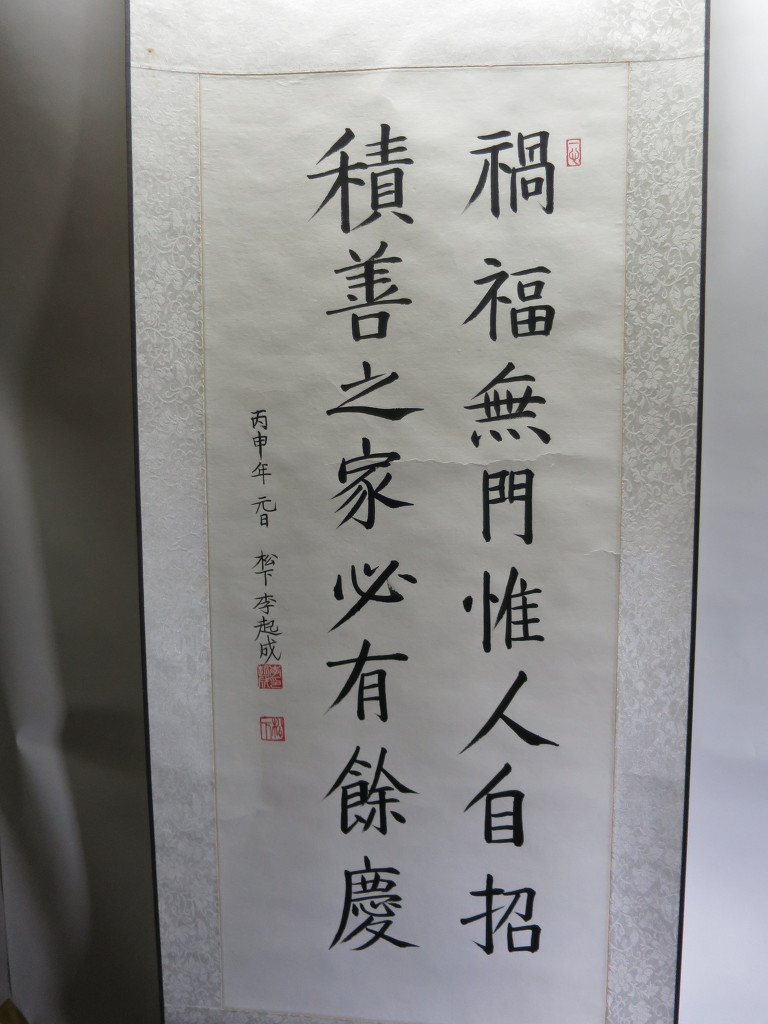 禍福無門惟人自招
積善之家必有餘慶
丙申年 元日 松下李起成
松下